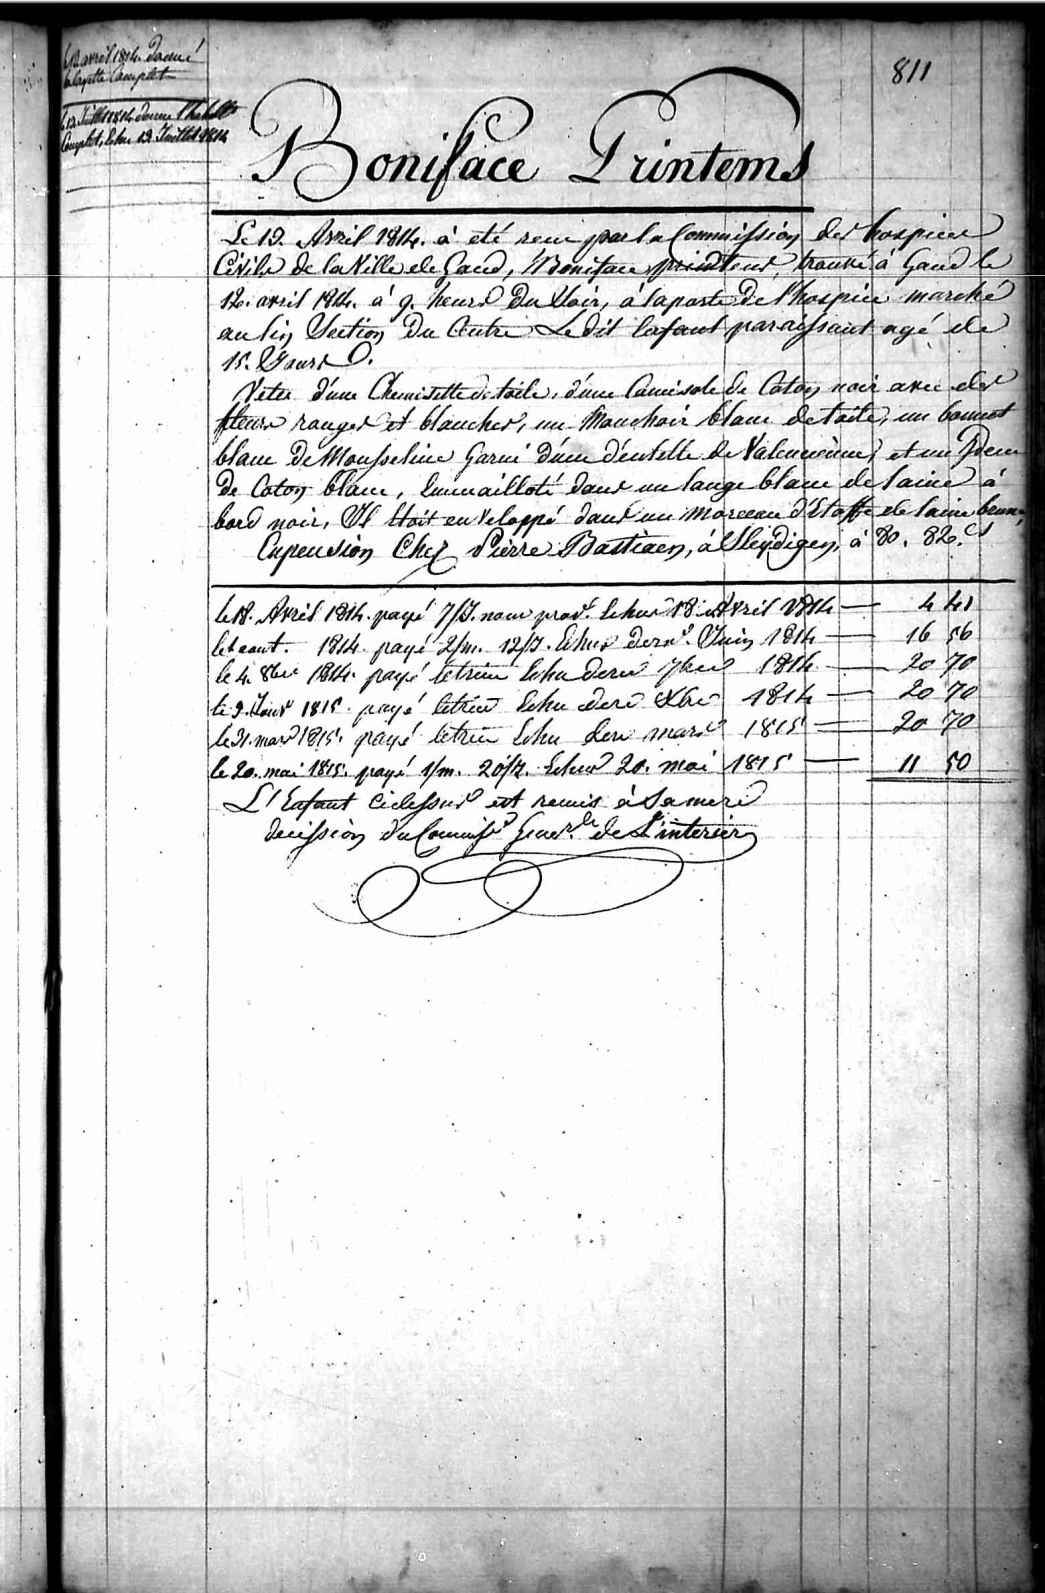 811
le 13 avril 1814. donné
la layette Complet
le 13 Juillet 1814 donné l'habill
Complet, Echu 13 Juillet 1814
Boniface Printems
Le 13. Avril 1814. à été recu par la Commission des hospices
Civils de la Ville de Gand, Boniface printems, trouvé à Gand le
12. avril 1814. à 9. heures Du Soir, à la porte De l'hospice marché
au lin Section Du Centre Le dit Enfant paraissant agé de
15. Jours.
Vetu d'une Chemisette de toile, d'une Camisole de Coton noir avec des
fleurs rouges et blanches, un Mouchoir blanc de toile, un bonnet
blanc De Mousseline Garni d'une déntelle de Valencienne, et un
de Coton blanc, Emmailloté dans un lange blanc de laine à
bord noir, Il Etoit enveloppé dans un morceau d'Etoffe de laine brune,
Enpension Chez Pierre Bastiaen, à Sleydigen, à 80. 82. cs
le 18. Avril 1814. payé 7/J. nour prov.e Echus 18 Avril 1814 — 4 41
le 1 aout. 1814. payé 2/m. 12/J. Echus dern.r Juin 1814 — 16 56
le 4. 8bre 1814. payé letrim Echu dern 7bre 1814 — 20 70
le 9. Janvr 1815. payé letrim Echu dern Xbre 1814 — 20 70
le 31. mars 1815. payé letrim Echu dern mars 1815 — 20 70
le 20. mai 1815. payé 1/m. 20/J. Echus 20. mai 1815 — 11 50
L'Enfant cidessus est remis à Sa mere
decission du Commisre Gener.le de L'interieur